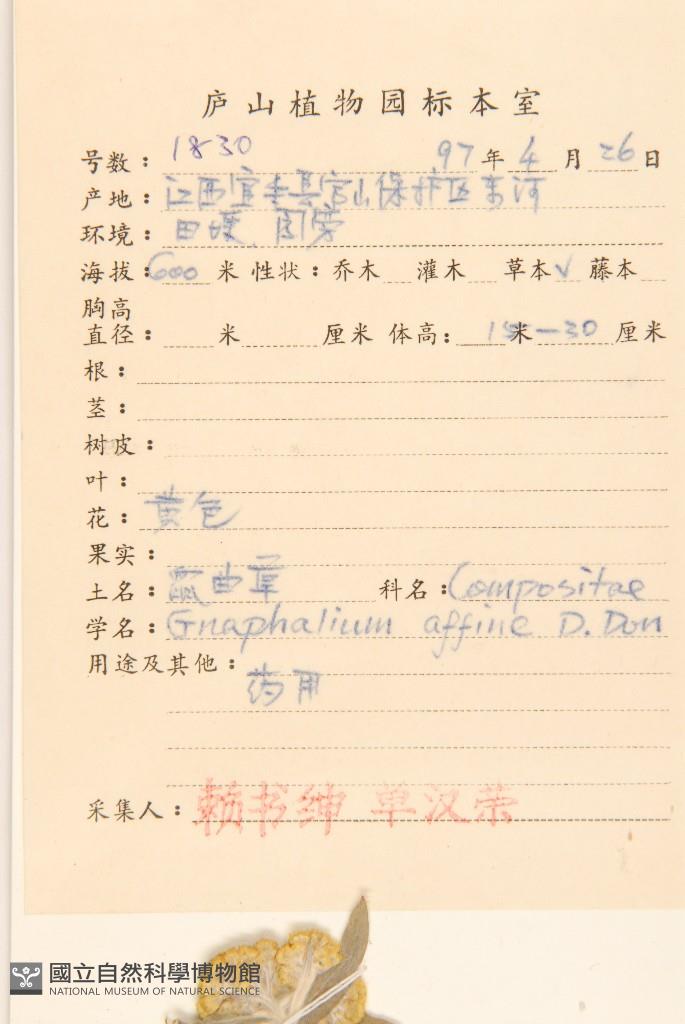 庐山植物园标本室
号数： 1830 97年4月26日
产地：江西宜丰县官山保护区东河
环境：田埂、园旁
海拔：600 米 性状：乔木 灌木 草本√ 藤本
胸高
直径： 米 厘米 体高： 15米—30 厘米
根：
茎：
树皮：
叶：
花：黄色
果实：
土名：鼠曲草 科名：Compositae
学名：Gnaphalium affine D. Don
用途及其他：
药用
采集人：赖书绅 单汉荣
國立自然科學博物館
NATIONAL MUSEUM OF NATURAL SCIENCE